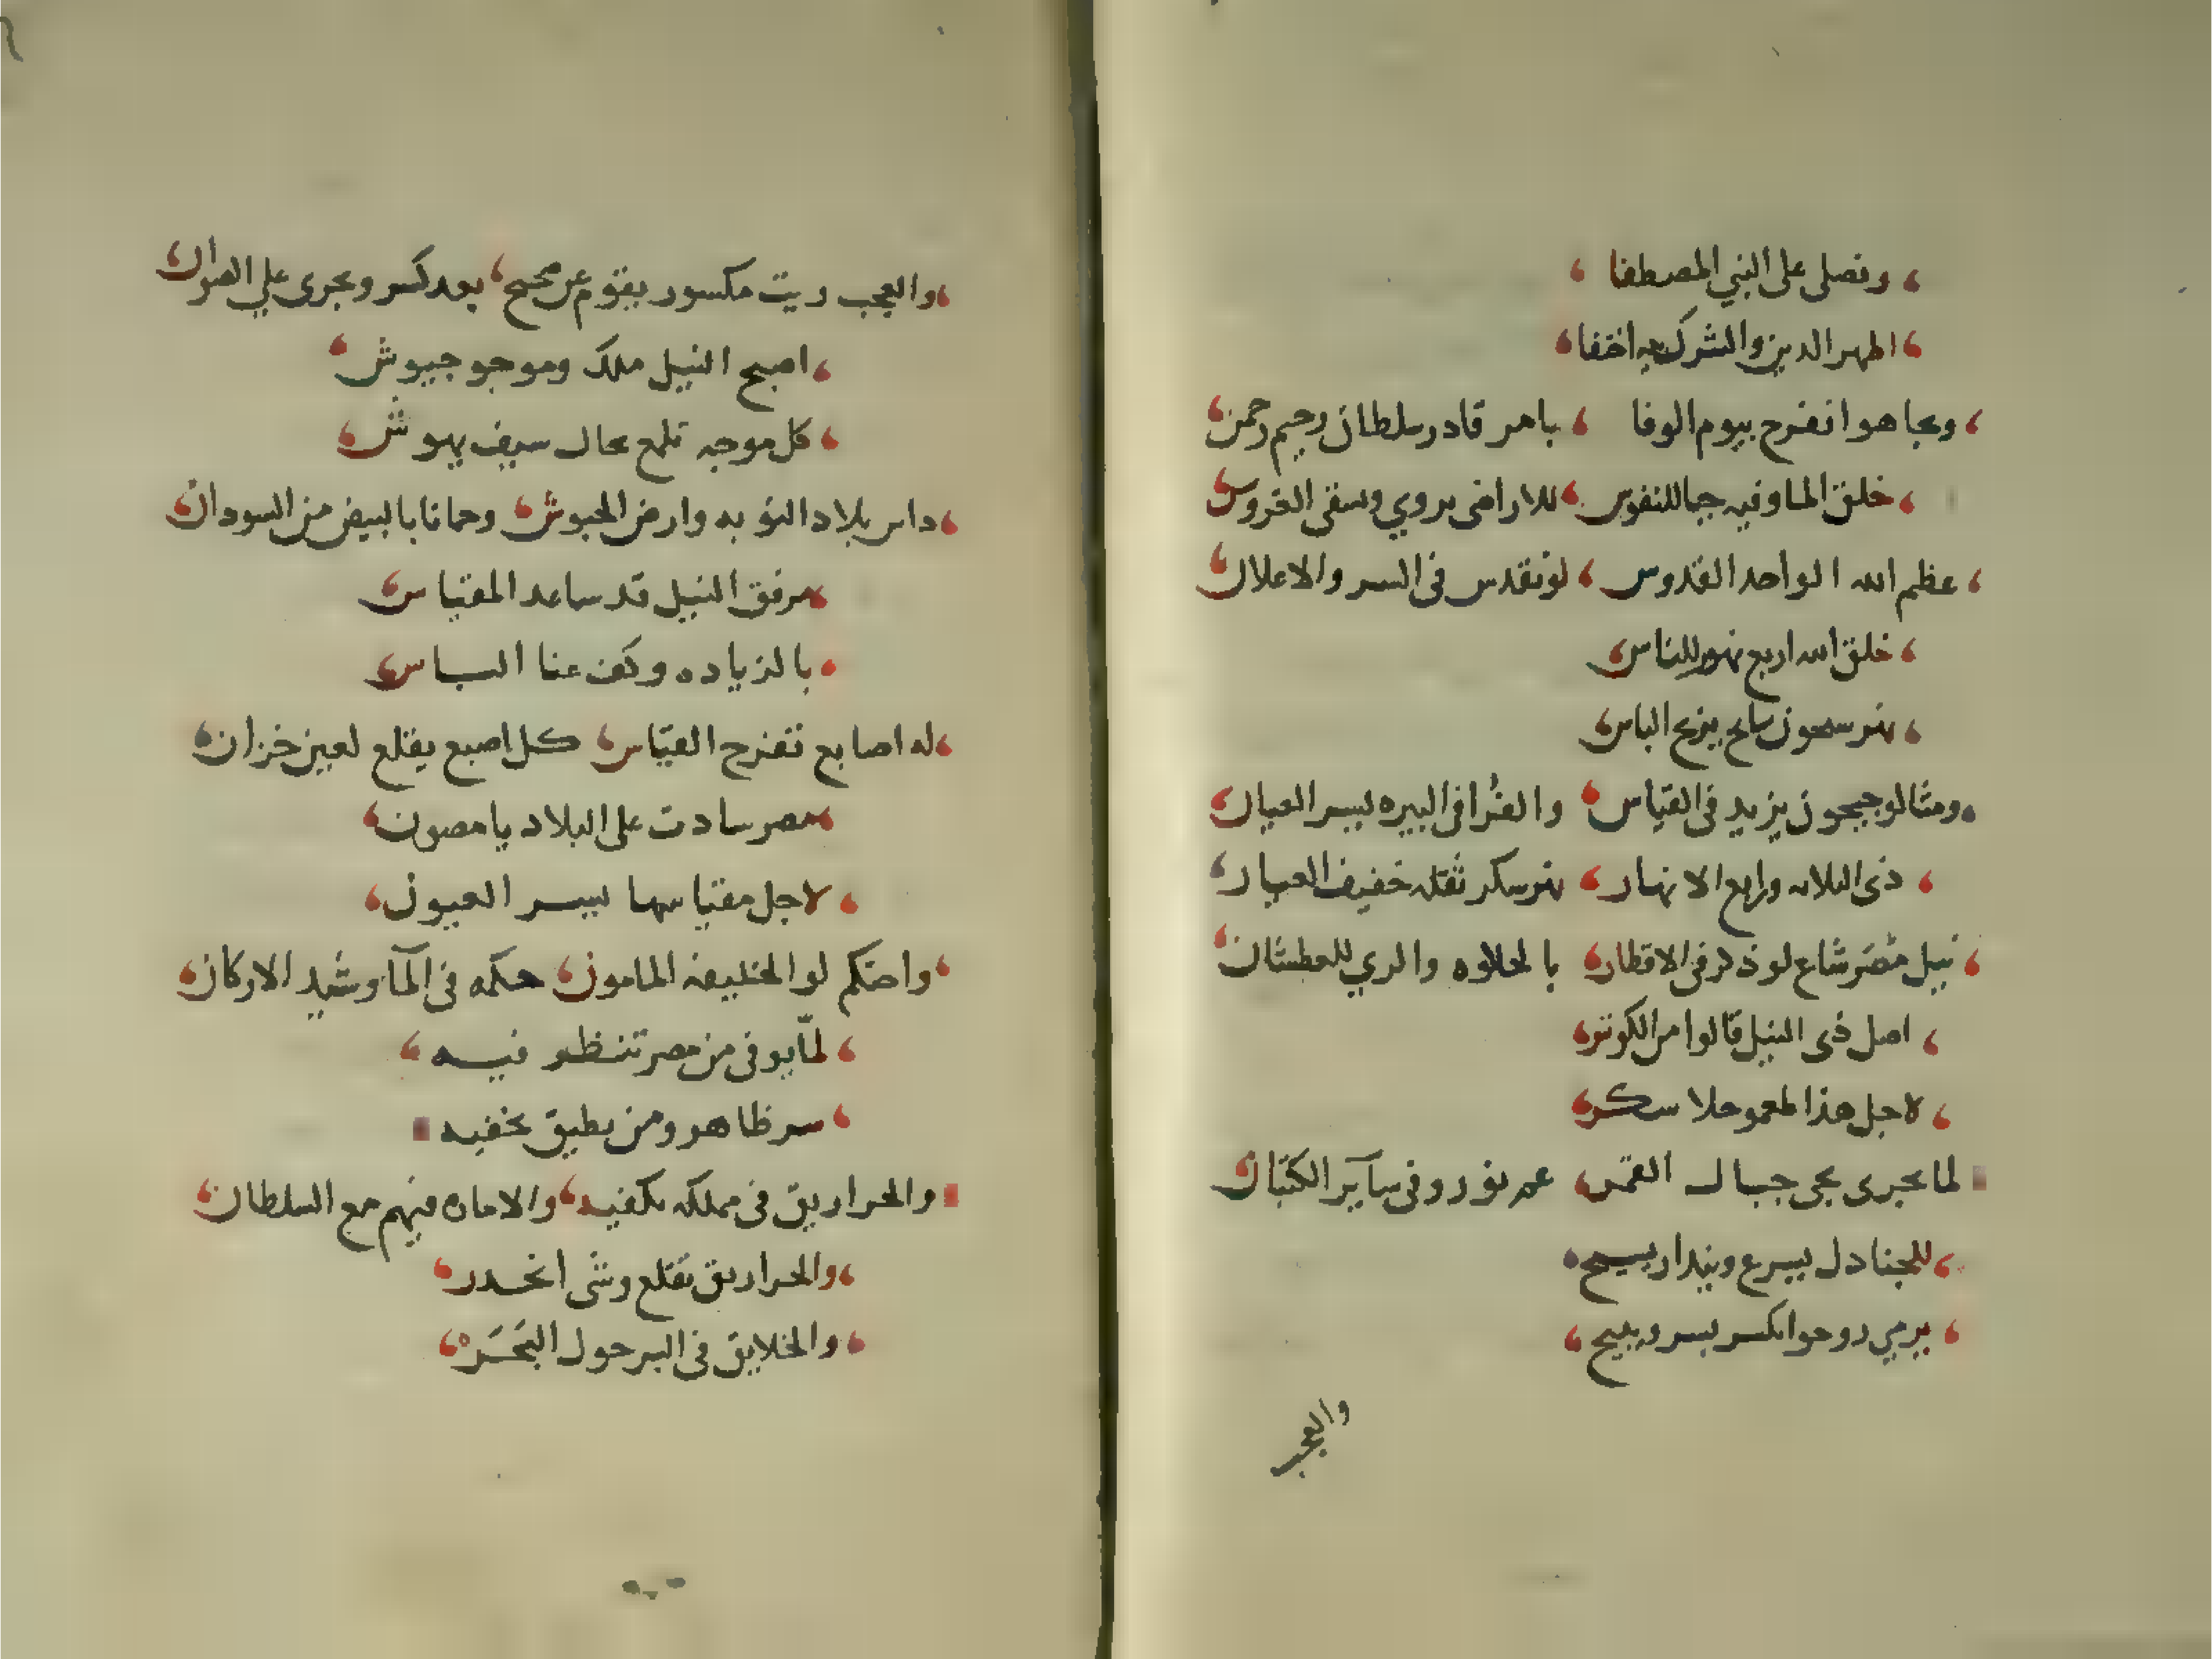 ونصلى على النبي المصطفا
اظهر الدين والشرك به اختفا
وبجاهو انفرح بيوم الوفا بامر قادر سلطان رحيم رحمن
خلق الما وفيه حيا للنفوس للاراضى يروي ويسقى الغروس
عظم الله الواحد القدوس لو نقدس فى السر والاعلان
خلق الله اربع نهور للناس
نهر سحون سايح يزيح الباس
ومثالو جيحون يزيد فى القياس والفرا فى البيره يسر العيان
ذى الثلاثه ورابع الانهار نهر سكر ثقله خفيف العيار
نيل مصر شاع لو ذكر فى الاقطار بالحلاوه والري للعطشان
اصل ذى النيل قالوا من الكوثر
لاجل هذا طعمو حلا سكر
لما يجرى يجى جبال القمر عم نورو فى ساير الكتبان
للجنادل يسرع ويندار يسيح
يرمي روحوا يكسر يسر ويبيح
والعجب
والعجب ريت مكسور يقوم عن صحيح بعد كسر ويجرى على الصوان
اصبح النيل ملك وموجو جيوش
كل موجه تلمع بحال سيف يهوش
داس بلاد النوبه وارض الحبوش وحمانا بالبيض من السودان
مرفق النيل قد ساعد المقياس
بالزياده وكف عنا الباس
له اصابع تفرح القياس كل اصبع يقلع لعين خزان
مصر سادت على البلاد يا مصون
لاجل مقياسها يسر العيون
واحتكم لو الخليفه المامون حكمه فى المآ وشيد الاركان
لمّا يوفى من مصر تنظر فيه
سر ظاهر ومن يطيق يخفيه
والحراريق فى مملكه تكفيه والاماره فيهم مع السلطان
والحراريق تقلع وشى انحدر
والخلايق فى البر حول البَحَر